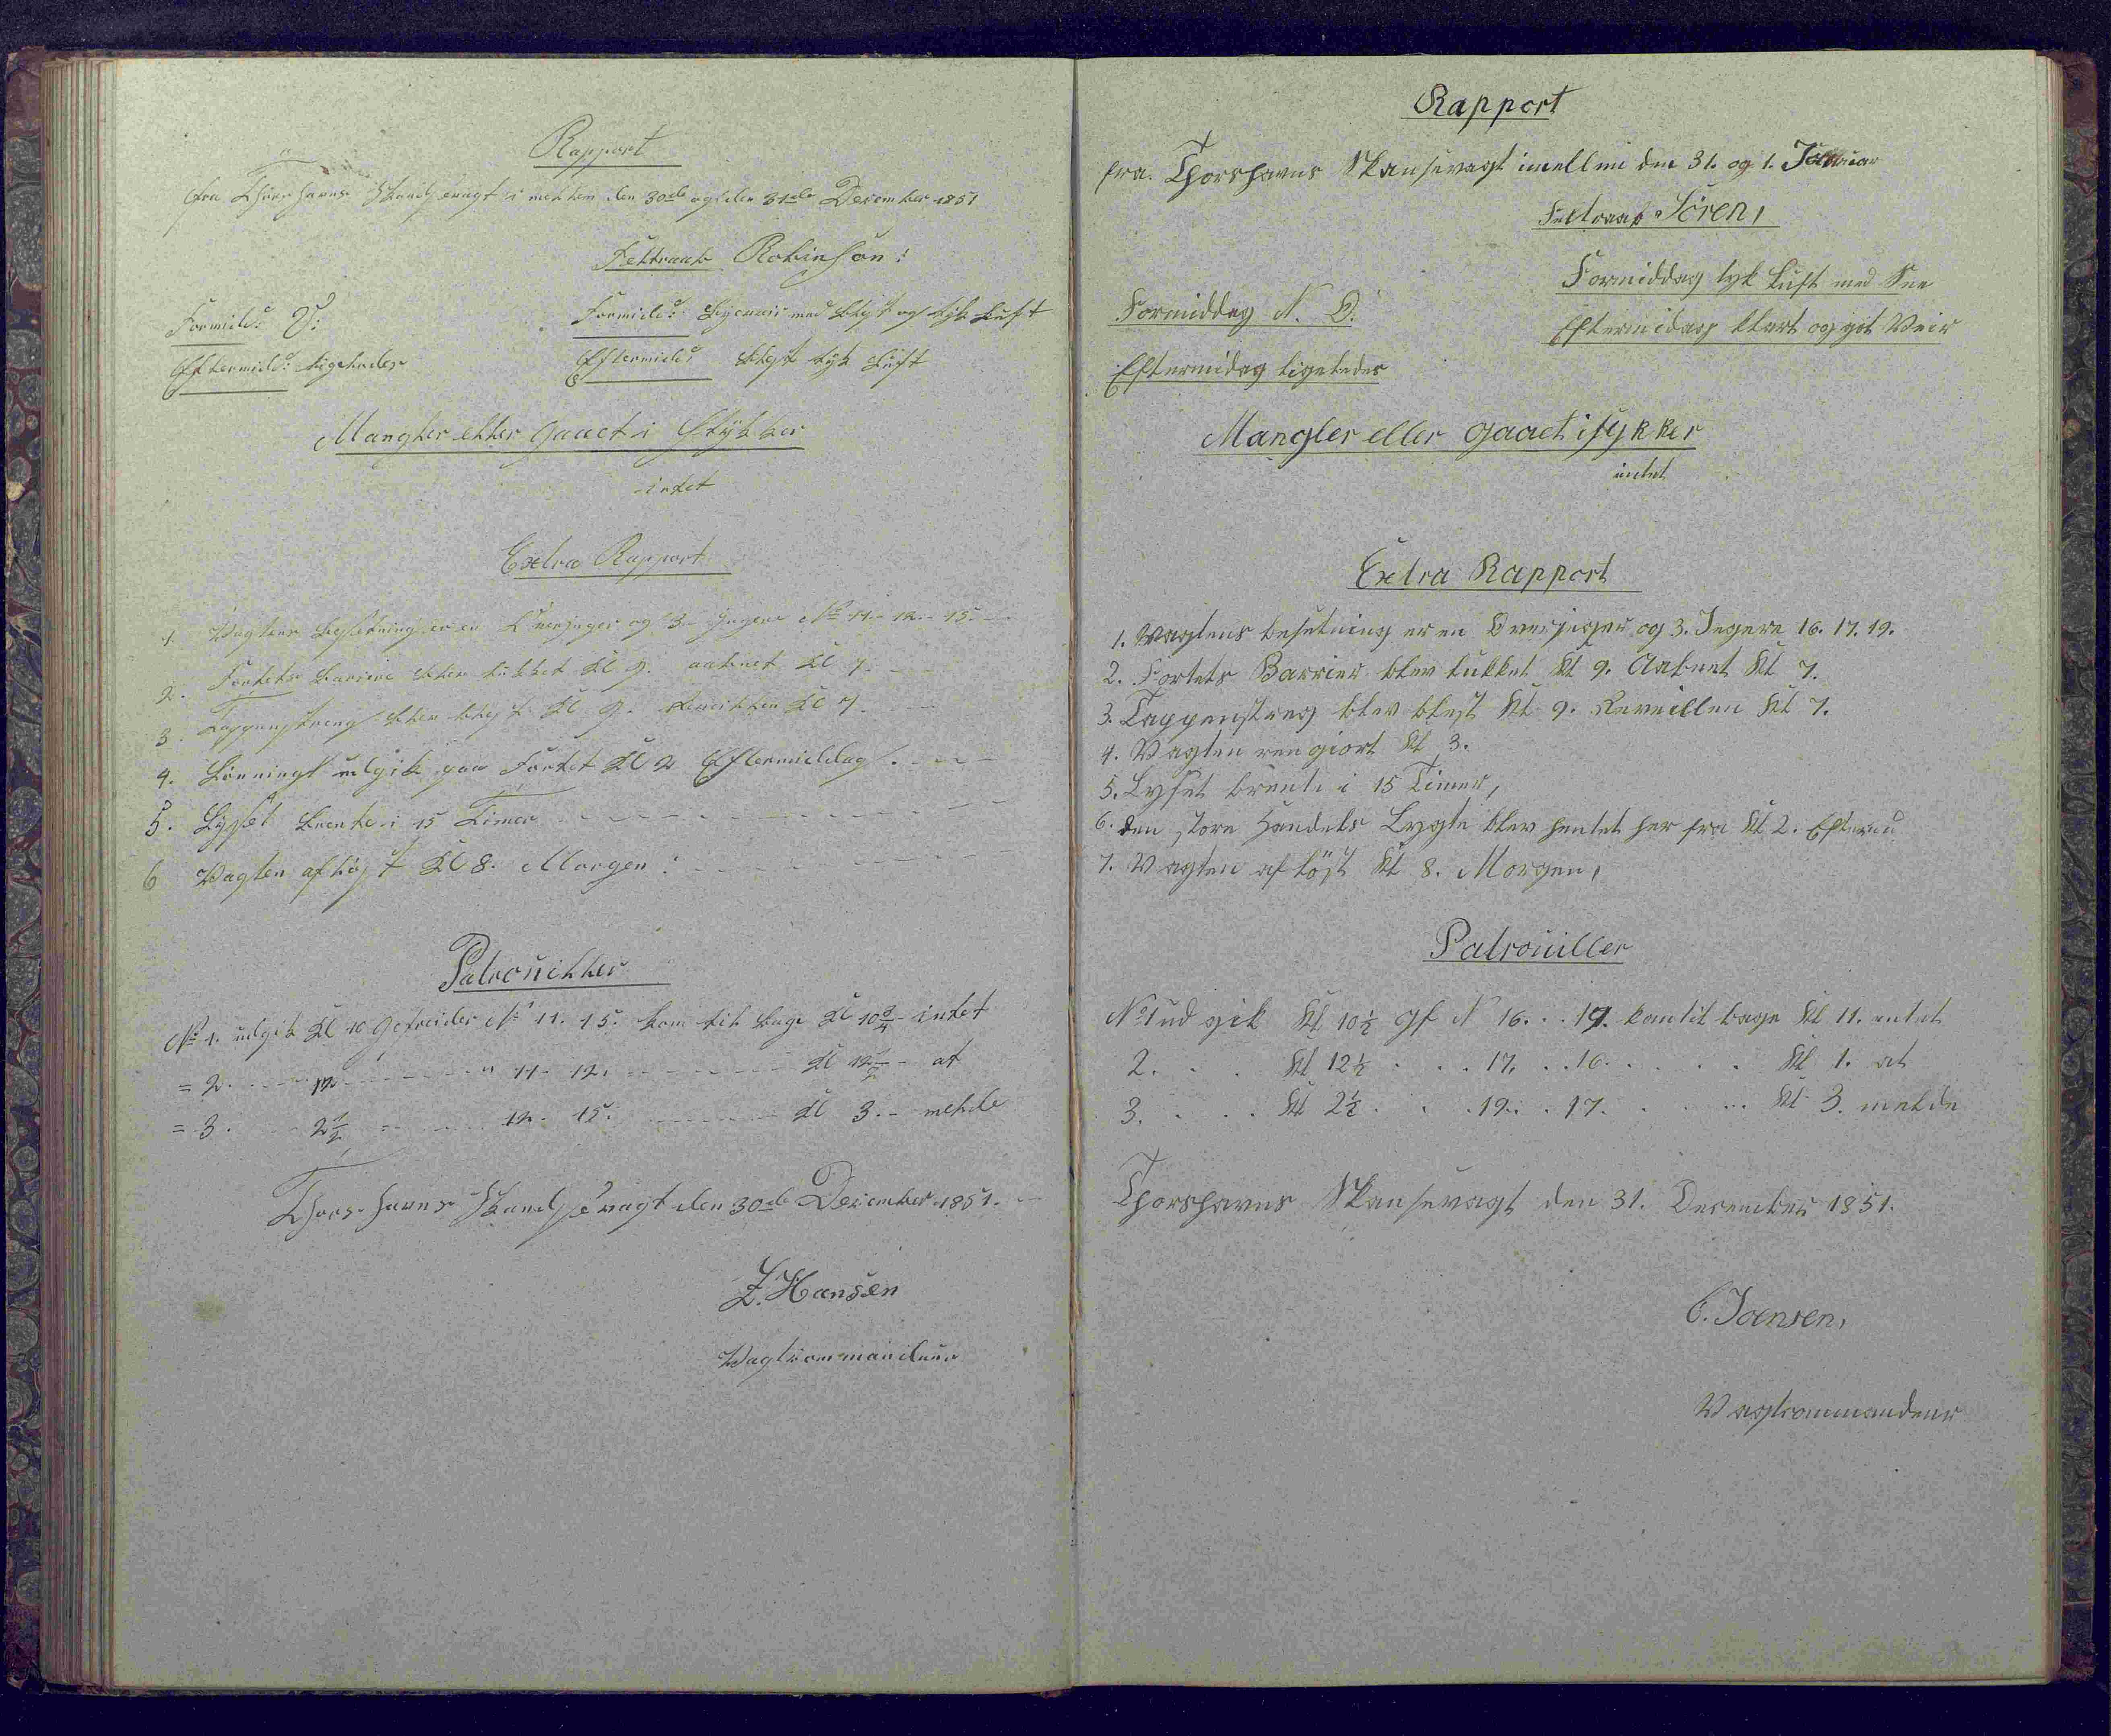 Rapport
fra Thorshavns Skandsevagt i mellem den 30de og den 31de December 1851
Feltraab Robinson:
Formidd: V: Formidd: med Blæst og tyk Luft
Eftermidd: ligeledes Eftermidd: Blæst tyk Luft
Mangler eller gaaet i Stykker
intet
Extra Rapport
1. Vagtens Besetning er en Overjæger og 3 Jægere No 11 - 12 - 15.
2. Fortets Bariere blev lukket Kl 9. aabnet Kl 7.
3. Tappenstreng blev blæst Kl 9. Reveillen Kl 7.
4. Lønningt udgik paa Fortet Kl 2 Eftermiddag.
5. Lyset brente i 15 Timer
6 Vagten afløst Kl 8. Morgen:
Patrouiller
No 1. udgik Kl 10 Gefreider No 11. 15. kom til bage Kl 10 3/4 intet
= 2. 12 11 - 12. Kl 12 1/2 - at
= 3. 2 1/2 12 - 15. Kl 3. - melde
Thorshavns Skandsevagt den 30de December 1851.
Z. Hansen
Vagtcommandeur
Rapport
fra. Thorshavns Skansevagt imellem den 31. og 1. Januar
Feltraab Sören,
Formiddag tyk Luft med Sne
Formiddag N. O. Eftermidag klart og got Veir
Eftermidag ligeledes
Mangler eller gaaet i sykker
intet
Extra Rapport
1. Vagtens besetning er en Overjeger og 3. Jegere 16. 17. 19.
2. Fortets Barrier blev lukket Kl 9. Aabnet Kl 7.
3. Tappenstreg blev blest Kl 9. Reveillen Kl 7.
4. Vagten rengiort Kl 3.
5. Lyset brente i 15 Timer,
6. den store Handels Lygte blev hentet her fra Kl 2. Efterm
7. Vagten af löst Kl 8. Morgen,
Patrouiller
No 1 ud gik Kl 10 1/2 gf N 16. . 19. kom til bage Kl 11. intet
2. . . Kl 12 1/2 . . . 17. . . 16. . . . . Kl 1. at
3. . . . Kl 2 1/2 . . . 19. . . 17. . . . . Kl 3. melde
Thorshavns Skansevagt den 31. December 1851.
C. Joensen,
Vagtcommandeur